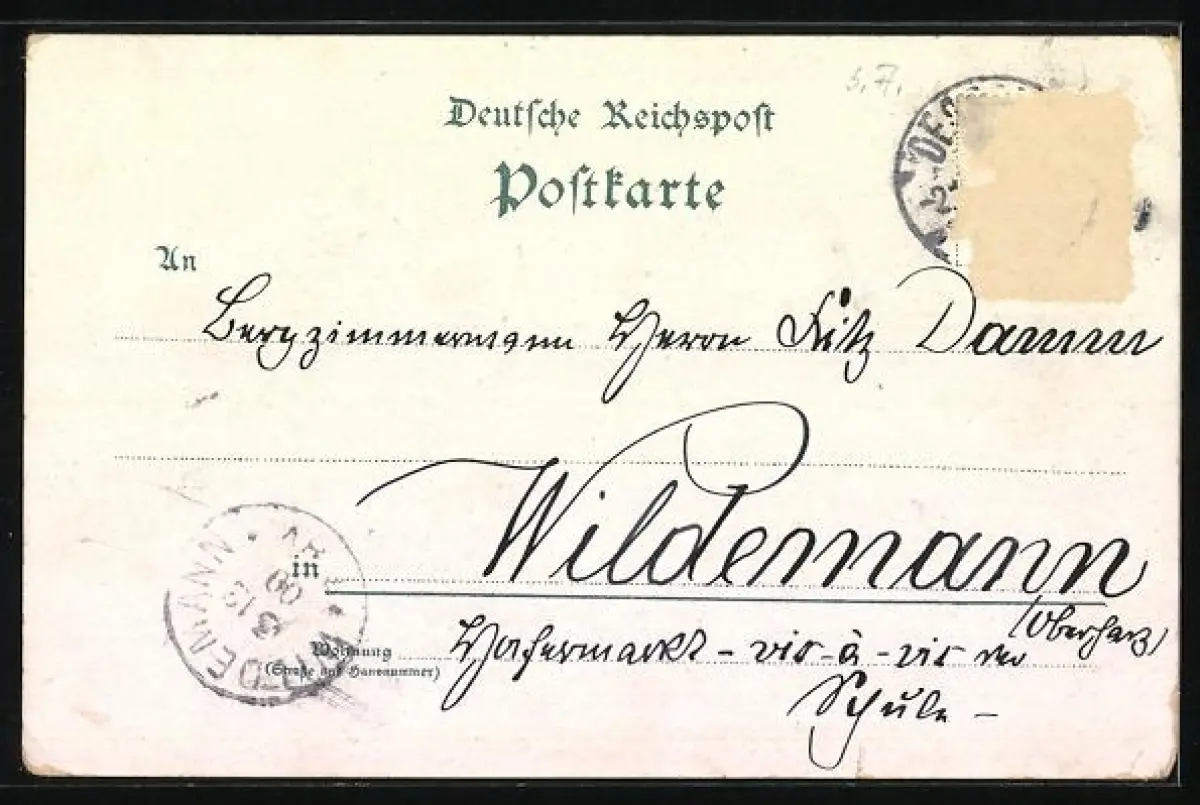 s. 7.
Deutsche Reichspost
Postkarte
2- DES
An
Bergzimmermann Herrn Fritz Damm
Wildemann
in
(Oberharz)
WILDEMANN
3 12
00
Wohnung
(Straße und Hausnummer)
Hafermarkt - vis-à-vis der
Schule -